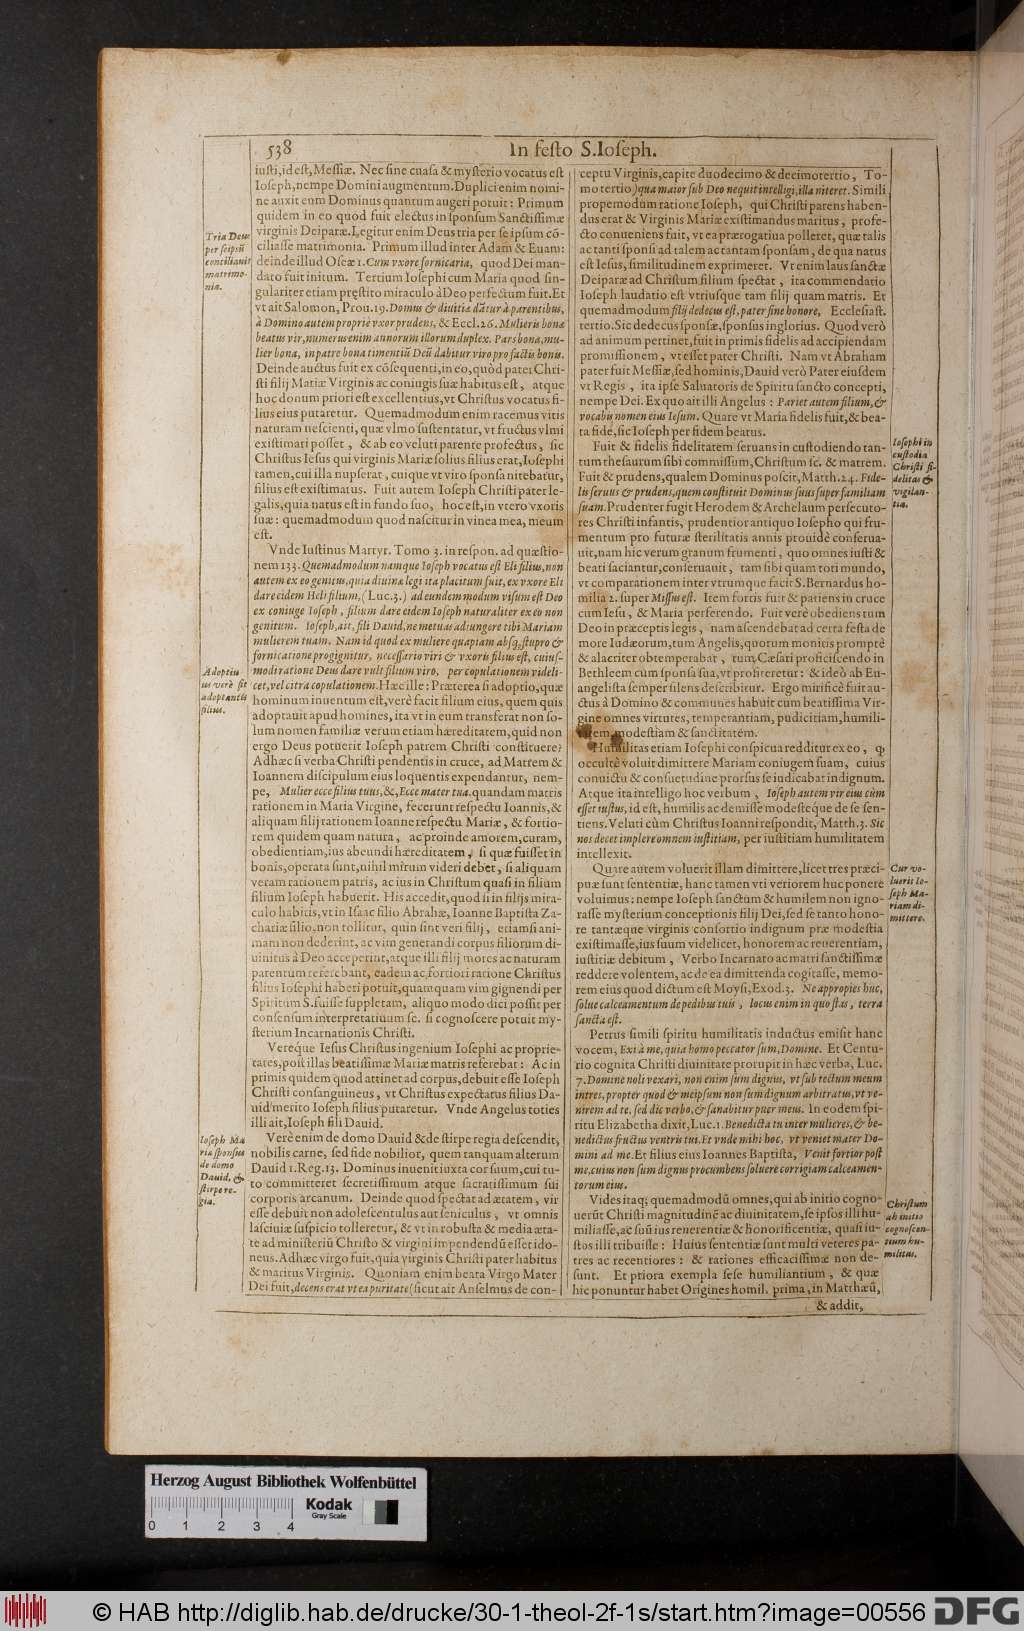 538
In festo S. Ioseph.
iusti, id est, Messiæ. Nec sine causa & mysterio vocatus est
Ioseph, nempe Domini augmentum. Duplici enim nomi-
ne auxit eum Dominus quantum augeri potuit: Primum
quidem in eo quod fuit electus in sponsum Sanctissimæ
virginis Deiparæ. Legitur enim Deus tria per se ipsum cō-
ciliasse matrimonia. Primum illud inter Adam & Euam:
deinde illud Oseæ 1. Cum vxore fornicaria, quod Dei man-
dato fuit initum. Tertium Iosephi cum Maria quod sin-
gulariter etiam pręstito miraculo à Deo perfectum fuit. Et
vt ait Salomon, Prou. 19. Domus & diuitiæ dātur à parentibus,
à Domino autem propriè vxor prudens, & Eccl. 26. Mulieris bonæ
beatus vir, numerus enim annorum illorum duplex. Pars bona, mu-
lier bona, in patre bona timentiū Deū dabitur viro pro factis bonis.
Deinde auctus fuit ex cōsequenti, in eo, quòd pater Chri-
sti filij Mariæ Virginis ac coniugis suæ habitus est, atque
hoc donum priori est excellentius, vt Christus vocatus fi-
lius eius putaretur. Quemadmodum enim racemus vitis
naturam nescienti, quæ vlmo sustentatur, vt fructus vlmi
existimari posset, & ab eo veluti parente profectus, sic
Christus Iesus qui virginis Mariæ solius filius erat, Iosephi
tamen, cui illa nupserat, cuique vt viro sponsa nitebatur,
filius est existimatus. Fuit autem Ioseph Christi pater le-
galis, quia natus est in fundo suo, hoc est, in vtero vxoris
suæ: quemadmodum quod nascitur in vinea mea, meum
est.
Vnde Iustinus Martyr. Tomo 3. in respon. ad quæstio-
nem 133. Quemadmodum namque Ioseph vocatus est Eli filius, non
autem ex eo genitus, quia diuinæ legi ita placitum fuit, ex vxore Eli
dare eidem Heli filium, (Luc. 3.) ad eundem modum visum est Deo
ex coniuge Ioseph, filium dare eidem Ioseph naturaliter ex eo non
genitum. Ioseph, ait, fili Dauid, ne metuas adiungere tibi Mariam
mulierem tuam. Nam id quod ex muliere quapiam absq; stupro &
fornicatione progignitur, necessario viri & vxoris filius est, cuius-
modi ratione Deus dare vult filium viro, per copulationem videli-
cet, vel citra copulationem. Hæc ille: Præterea si adoptio, quæ
hominum inuentum est, verè facit filium eius, quem quis
adoptauit apud homines, ita vt in eum transferat non so-
lum nomen familiæ verum etiam hæreditatem, quid non
ergo Deus potuerit Ioseph patrem Christi constituere?
Adhæc si verba Christi pendentis in cruce, ad Matrem &
Ioannem discipulum eius loquentis expendantur, nem-
pe, Mulier ecce filius tuus, &, Ecce mater tua. quandam matris
rationem in Maria Virgine, fecerunt respectu Ioannis, &
aliquam filij rationem Ioanne respectu Mariæ, & fortio-
rem quidem quam natura, ac proinde amorem, curam,
obedientiam, ius abeundi hæreditatem, si quæ fuisset in
bonis, operata sunt, nihil mirum videri debet, si aliquam
veram rationem patris, ac ius in Christum quasi in filium
filium Ioseph habuerit. His accedit, quod si in filijs mira-
culo habitis, vt in Isaac filio Abrahæ, Ioanne Baptista Za-
chariæ filio. non tollitur, quin sint veri filij, etiamsi ani-
mam non dederint, ac vim generandi corpus filiorum di-
uinitus à Deo acceperint, atque illi filij mores ac naturam
parentum referebant, eadem ac fortiori ratione Christus
filius Iosephi haberi potuit, quamquam vim gignendi per
Spiritum S. fuisse suppletam, aliquo modo dici possit per
consensum interpretatiuum sc. si cognoscere potuit my-
sterium Incarnationis Christi.
Vereque Iesus Christus ingenium Iosephi ac proprie-
tates, post illas beatissimæ Mariæ matris referebat: Ac in
primis quidem quod attinet ad corpus, debuit esse Ioseph
Christi consanguineus, vt Christus expectatus filius Da-
uid merito Ioseph filius putaretur. Vnde Angelus toties
illi ait, Ioseph fili Dauid.
Verè enim de domo Dauid & de stirpe regia descendit,
nobilis carne, sed fide nobilior, quem tanquam alterum
Dauid 1. Reg. 13. Dominus inuenit iuxta cor suum, cui tu-
to committeret secretissimum atque sacratissimum sui
corporis arcanum. Deinde quod spectat ad ætatem, vir
esse debuit non adolescentulus aut seniculus, vt omnis
lasciuiæ suspicio tolleretur, & vt in robusta & media æta-
te ad ministeriū Christo & virgini impendendū esset ido-
neus. Adhæc virgo fuit, quia virginis Christi pater habitus
& maritus Virginis. Quoniam enim beata Virgo Mater
Dei fuit, decens erat vt ea puritate (sicut ait Anselmus de con-
Tria Deus
per seipsū
conciliauit
matrimo-
nia.
Adoptiuus
verè sit
adoptantis
filius.
Ioseph Ma
riæ sponsus
de domo
Dauid, &
stirpe re-
gia.
ceptu Virginis, capite duodecimo & decimotertio, To-
mo tertio) qua maior sub Deo nequit intelligi, illa niteret. Simili
propemodum ratione Ioseph, qui Christi parens haben-
dus erat & Virginis Mariæ existimandus maritus, profe-
cto conueniens fuit, vt ea prærogatiua polleret, quæ talis
ac tanti sponsi ad talem ac tantam sponsam, de qua natus
est Iesus, similitudinem exprimeret. Vt enim laus sanctæ
Deiparæ ad Christum filium spectat, ita commendatio
Ioseph laudatio est vtriusque tam filij quam matris. Et
quemadmodum filij dedecus est, pater sine honore, Ecclesiast.
tertio. Sic dedecus sponsæ, sponsus inglorius. Quod verò
ad animum pertinet, fuit in primis fidelis ad accipiendam
promissionem, vt esset pater Christi. Nam vt Abraham
pater fuit Messiæ, sed hominis, Dauid verò Pater eiusdem
vt Regis, ita ipse Saluatoris de Spiritu sancto concepti,
nempe Dei. Ex quo ait illi Angelus: Pariet autem filium, &
vocabis nomen eius Iesum. Quare vt Maria fidelis fuit, & bea-
ta fide, sic Ioseph per fidem beatus.
Fuit & fidelis fidelitatem seruans in custodiendo tan-
tum thesaurum sibi commissum, Christum sc. & matrem.
Fuit & prudens, qualem Dominus poscit, Matth. 24. Fide-
lis seruus & prudens, quem constituit Dominus suus super familiam
suam. Prudenter fugit Herodem & Archelaum persecuto-
res Christi infantis, prudentior antiquo Iosepho qui fru-
mentum pro futuræ sterilitatis annis prouidè conserua-
uit, nam hic verum granum frumenti, quo omnes iusti &
beati saciantur, conseruauit, tam sibi quam toti mundo,
vt comparationem inter vtrumque facit S. Bernardus ho-
milia 2. super Missus est. Item fortis fuit & patiens in cruce
cum Iesu, & Maria perferendo. Fuit verè obediens tum
Deo in præceptis legis, nam ascendebat ad certa festa de
more Iudæorum, tum Angelis, quorum monitis promptè
& alacriter obtemperabat, tum Cæsari proficiscendo in
Bethleem cum sponsa sua, vt profiteretur: & ideò ab Eu-
angelista semper silens describitur. Ergo mirificè fuit au-
ctus à Domino & communes habuit cum beatissima Vir-
gine omnes virtutes, temperantiam, pudicitiam, humili-
tatem, modestiam & sanctitatem.
Humilitas etiam Iosephi conspicua redditur ex eo, q;
occultè voluit dimittere Mariam coniugem suam, cuius
conuictu & consuetudine prorsus se iudicabat indignum.
Atque ita intelligo hoc verbum, Ioseph autem vir eius cùm
esset iustus, id est, humilis ac demisse modestéque de se sen-
tiens. Veluti cùm Christus Ioanni respondit, Matth. 3. Sic
nos decet implere omnem iustitiam, per iustitiam humilitatem
intellexit.
Quare autem voluerit illam dimittere, licet tres præci-
puæ sunt sententiæ, hanc tamen vti veriorem huc ponere
voluimus: nempe Ioseph sanctum & humilem non igno-
rasse mysterium conceptionis filij Dei, sed se tanto hono-
re tantæque virginis consortio indignum præ modestia
existimasse, ius suum videlicet, honorem ac reuerentiam,
iustitiæ debitum, Verbo Incarnato ac matri sanctissimæ
reddere volentem, ac de ea dimittenda cogitasse, memo-
rem eius quod dictum est Moysi, Exod. 3. Ne appropies huc,
solue calceamentum de pedibus tuis, locus enim in quo stas, terra
sancta est.
Petrus simili spiritu humilitatis inductus emisit hanc
vocem, Exi à me, quia homo peccator sum, Domine. Et Centu-
rio cognita Christi diuinitate prorupit in hæc verba, Luc.
7. Domine noli vexari, non enim sum dignus, vt sub tectum meum
intres, propter quod & meipsum non sum dignum arbitratus, vt ve-
nirem ad te, sed dic verbo, & sanabitur puer meus. In eodem spi-
ritu Elizabetha dixit, Luc. 1. Benedicta tu inter mulieres, & be-
nedictus fructus ventris tui. Et vnde mihi hoc, vt veniet mater Do-
mini ad me. Et filius eius Ioannes Baptista, Venit fortior post
me, cuius non sum dignus procumbens soluere corrigiam calceamen-
torum eius.
Vides itaq; quemadmodū omnes, qui ab initio cogno-
uerūt Christi magnitudinē ac diuinitatem, se ipsos illi hu-
miliasse, ac suū ius reuerentiæ & honorificentiæ, quasi iu-
stos illi tribuisse: Huius sententiæ sunt multi veteres pa-
tres ac recentiores: & rationes efficacissimæ non de-
sunt. Et priora exempla sese humiliantium, & quæ
hic ponuntur habet Origines homil. prima, in Matthæū,
& addit,
Iosephi in
custodia
Christi fi-
delitas &
vigilan-
tia.
Cur vo-
luerit Io-
seph Ma-
riam di-
mittere.
Christum
ab initio
cognoscen-
tium hu-
militas.
Herzog August Bibliothek Wolfenbüttel
Kodak
Gray Scale
0 1 2 3 4
© HAB http://diglib.hab.de/drucke/30-1-theol-2f-1s/start.htm?image=00556
DFG